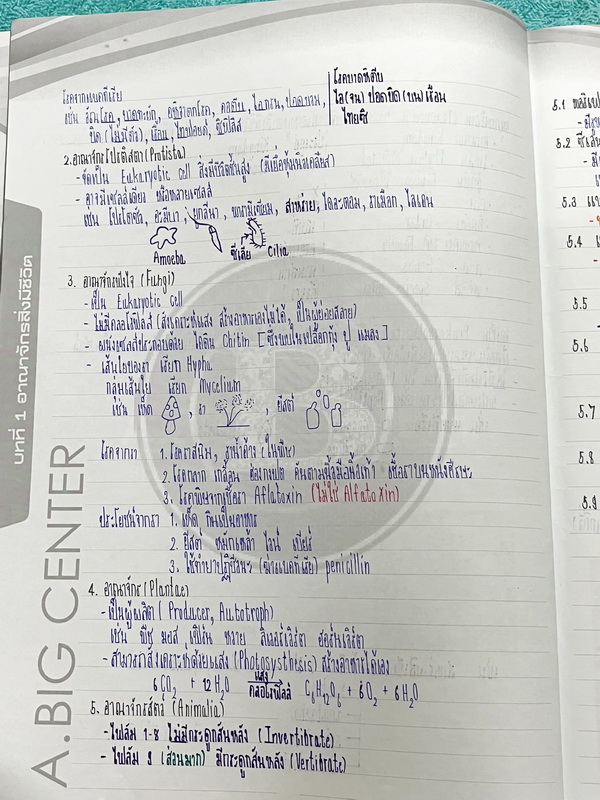 โรคจากแบคทีเรีย
เช่น วัณโรค, บาดทะยัก, อหิวาตกโรค, คอตีบ, ไอกรน, ปอดบวม,
บิด (ไม่มีตัว), เรื้อน, ไทฟอยด์, ซิฟิลิส
โรคบาดทีตีบ
ไอ(จน) ปอดบิด (บน) เรือน
ไทยซิ
2.อาณาจักรโปรติสตา (Protista)
- จัดเป็น Eukaryotic cell สิ่งมีชีวิตชั้นสูง (มีเยื่อหุ้มนิวเคลียส)
- อาจมีเซลล์เดียว หรือหลายเซลล์
เช่น โปรโตซัว, อะมีบา, ยูกลีนา, พารามีเซียม, สาหร่าย, ไดอะตอม, ราเมือก,
Amoeba ซีเลีย Cilia
3. อาณาจักรฟังไจ (Fungi)
- เป็น Eukaryotic cell
- ไม่มีคลอโรฟิลล์ (สังเคราะห์แสง สร้างอาหารเองไม่ได้, เป็นผู้ย่อยสลาย)
- ผนังเซลล์ประกอบด้วย ไคติน Chitin [ซึ่งพบในเปลือกกุ้ง ปู แมลง]
- เส้นใยของรา เรียก Hypha
กลุ่มเส้นใย เรียก Mycelium
เช่น เห็ด , รา , ยีสต์
โรคจากรา 1. โรคราสนิม, ราน้ำค้าง (ในพืช)
2. โรคกลาก เกลื้อน ฮ่องกงฟุต คันตามง่ามมือนิ้วเท้า เชื้อราบนหนังศีรษะ
3. โรคพิษจากเชื้อรา Aflatoxin (ไม่ใช่ Alfatoxin)
ประโยชน์จากรา 1. เห็ด กินเป็นอาหาร
2. ยีสต์ หมักเหล้า ไวน์ เบียร์
3. ใช้ทำยาปฏิชีวนะ (ฆ่าแบคทีเรีย) penicillin
4. อาณาจักร (Plantae)
- เป็นผู้ผลิต ( Producer, Autotroph)
เช่น พืช มอส เฟิร์น หวาย ลิเวอร์เวิร์ต ฮอร์นเวิร์ต
- สามารถสังเคราะห์ด้วยแสง (Photosysthesis) สร้างอาหารได้เอง
6CO2 + 12H2O แสง คลอโรฟิลล์ C6H12O6 + 6O2 + 6H2O
5. อาณาจักรสัตว์ (Animalia)
- ไฟลัม 1-8 ไม่มีกระดูกสันหลัง (Invertibrate)
- ไฟลัม 9 (ส่วนมาก) มีกระดูกสันหลัง (Vertibrate)
บทที่ 1 อาณาจักรสิ่งมีชีวิต
A.BIG CENTER
5.1
5.2
5.3
5.4
5.5
5.6
5.7
5.8
5.9